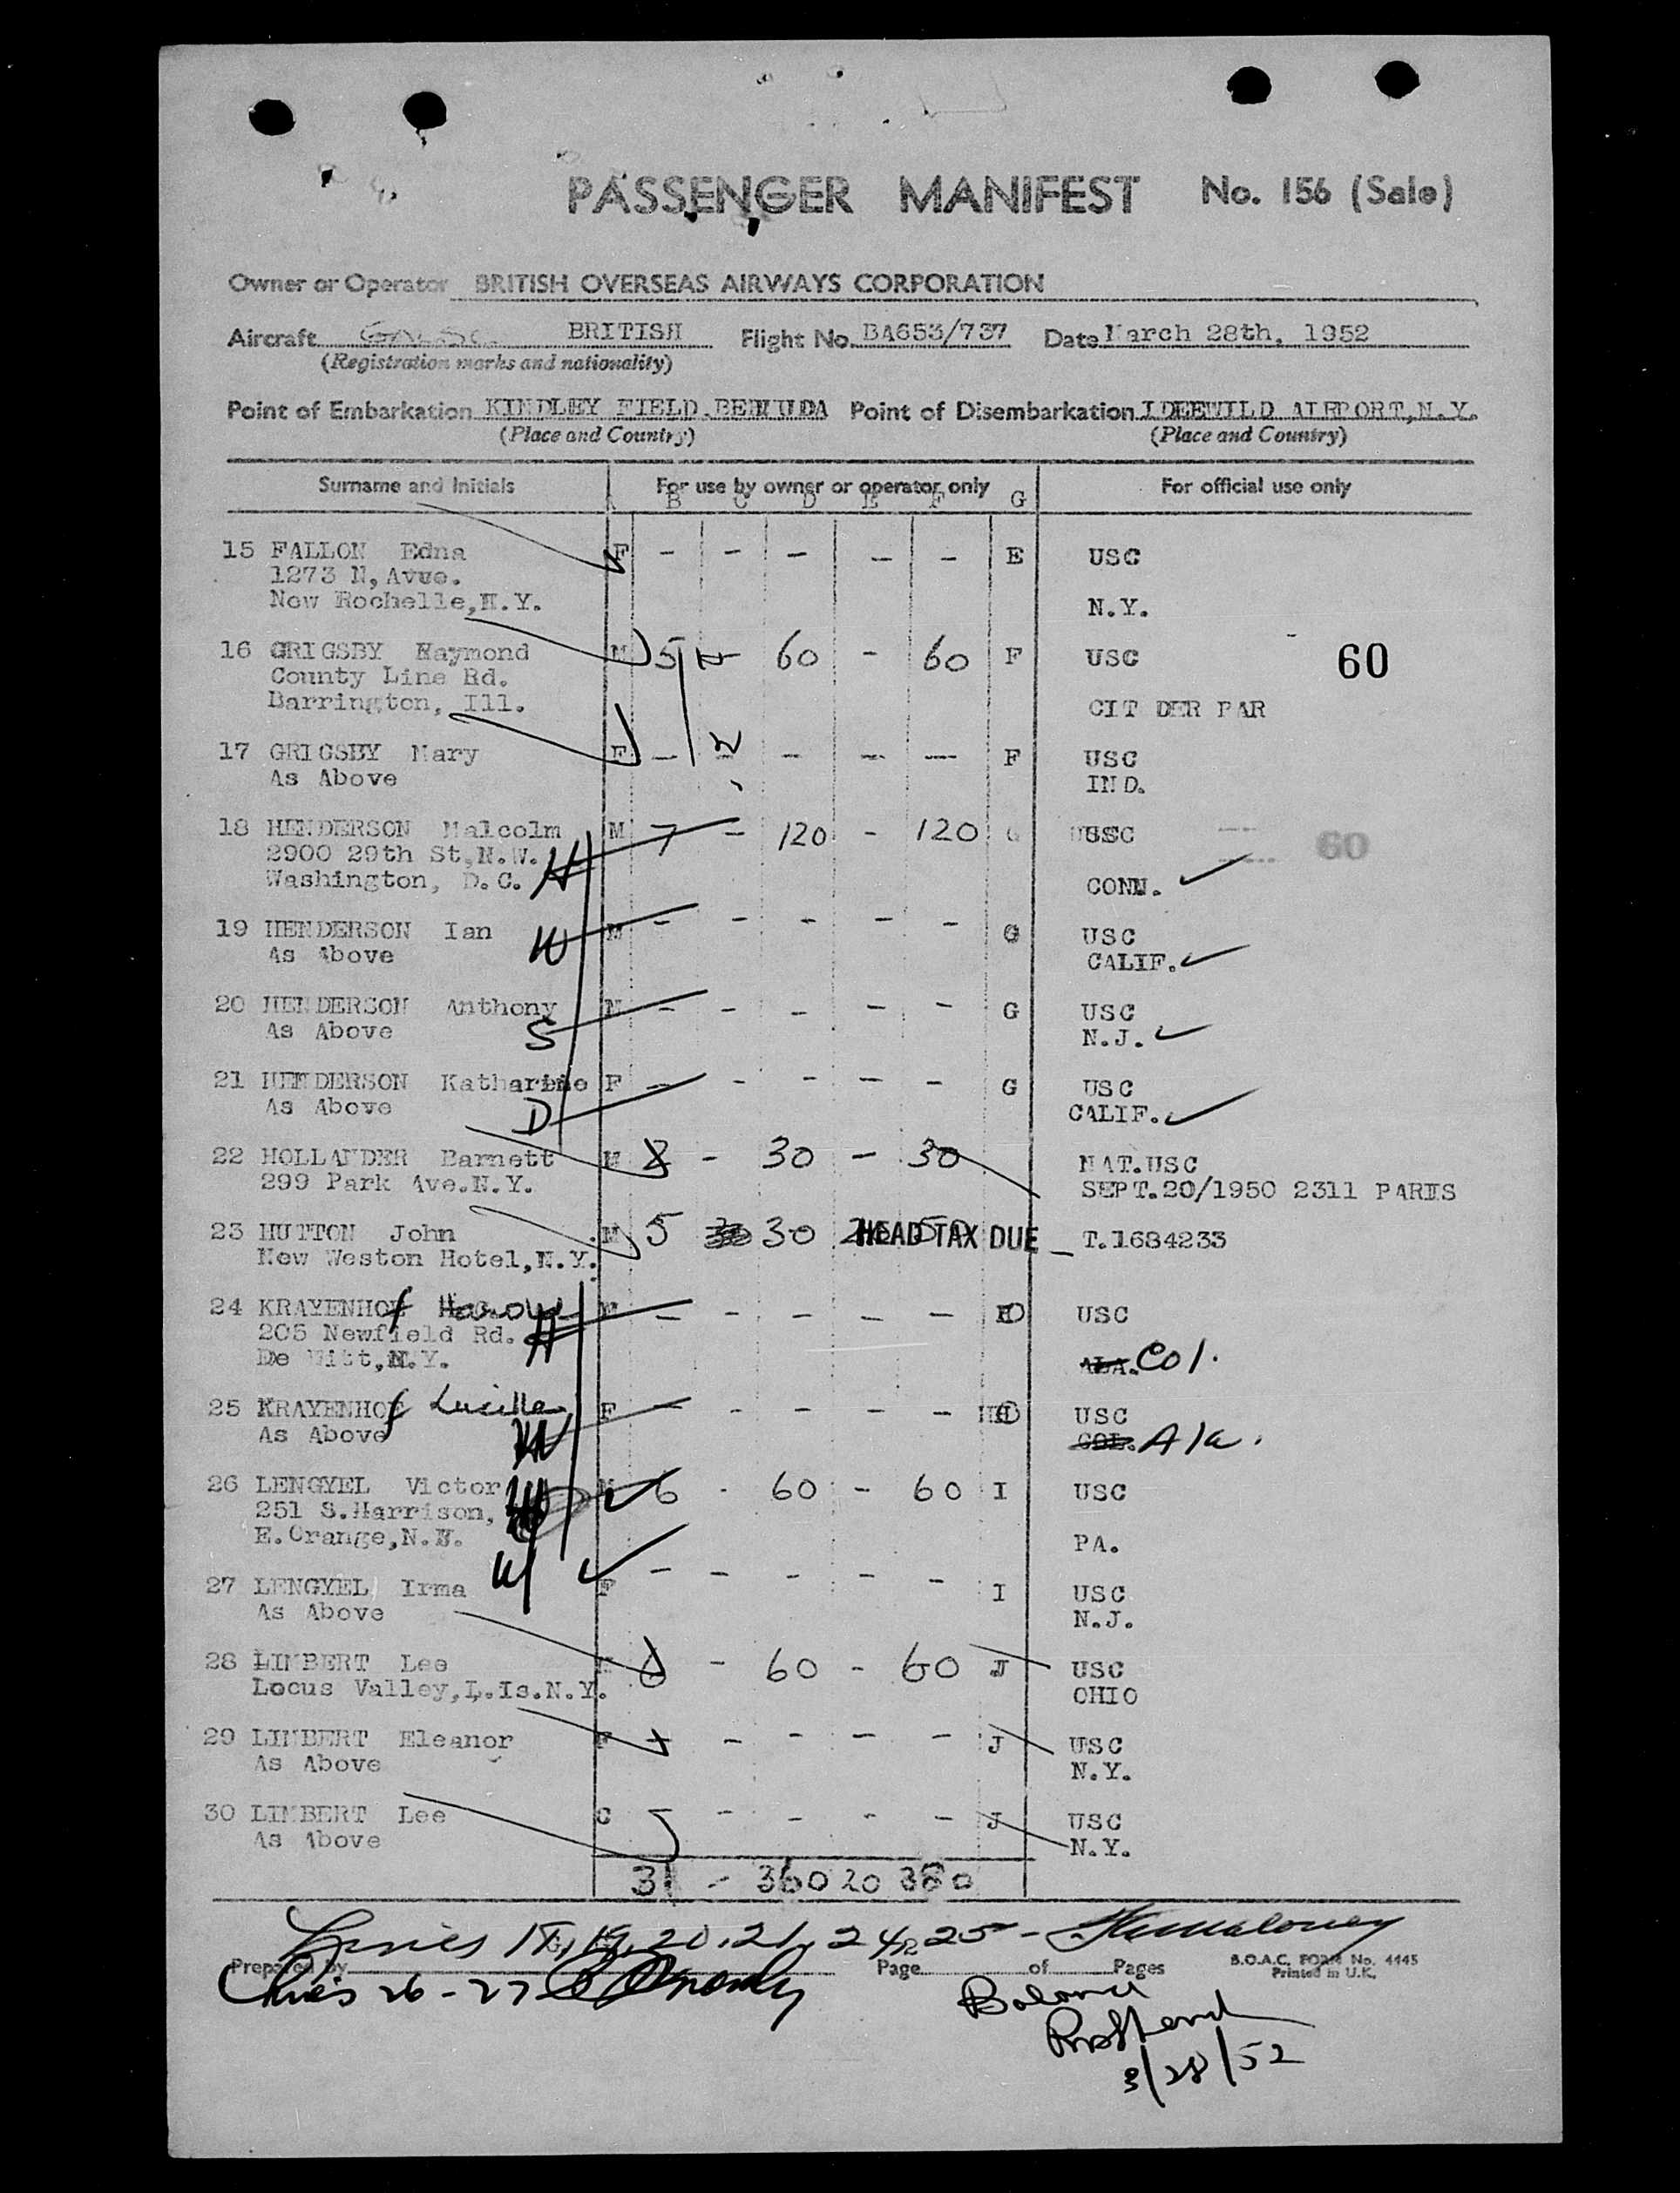 PASSENGER MANIFEST No. 156 (Sale)
Owner or Operator BRITISH OVERSEAS AIRWAYS CORPORATION
Aircraft BRITISH Flight No. BA653/737 Date March 28th, 1952
(Registration marks and nationality)
Point of Embarkation KINDLEY FIELD.BERMUDA Point of Disembarkation IDLEWILD AIRPORT,N.Y.
(Place and Country) (Place and Country)
Surname and Initials For use by owner or operator only For official use only
A B C D E F G
15 FALLON Edna F - - - - - E USC
1273 N, Avue.
New Rochelle,N.Y. N.Y.
16 GRIGSBY Raymond M 5 60 - 60 F USC 60
County Line Rd.
Barrington, Ill. CIT DER PAR
17 GRIGSBY Mary F - - - - - F USC
As Above IND.
18 HENDERSON Malcolm M 7 - 120 - 120 G USC 60
2900 29th St,N.W. H
Washington, D.C. CONN.
19 HENDERSON Ian W M - - - - - G USC
As Above CALIF.
20 HENDERSON Anthony M - - - - - G USC
As Above S N.J.
21 HENDERSON Katharine F - - - - - G USC
As Above D CALIF.
22 HOLLANDER Barnett M 8 - 30 - 30 NAT.USC
299 Park Ave.N.Y. SEPT.20/1950 2311 PARIS
23 HUTTON John M 5 30 HEAD TAX DUE T.1684233
New Weston Hotel,N.Y.
24 KRAYENHOf Harold - - - - - USC
205 Newfield Rd. H
De Witt,N.Y. ALA. Col.
25 KRAYENHOf Lucille F - - - - - USC
As Above W COL. Ala.
26 LENGYEL Victor M 6 - 60 - 60 I USC
251 S.Harrison,
E.Orange,N.J. PA.
27 LENGYEL Irma W F - - - - - I USC
As Above N.J.
28 LIMBERT Lee 6 - 60 - 60 J USC
Locus Valley,L.Is.N.Y. OHIO
29 LIMBERT Eleanor F - - - - - J USC
As Above N.Y.
30 LIMBERT Lee C - - - - - J USC
As Above N.Y.
31 - 360 20 380
Lines 18, 19, 20, 21, 24, 25 -
Prepared by Page of Pages B.O.A.C. FORM No. 4445
Printed in U.K.
Lines 26 - 27
Balance
3/28/52